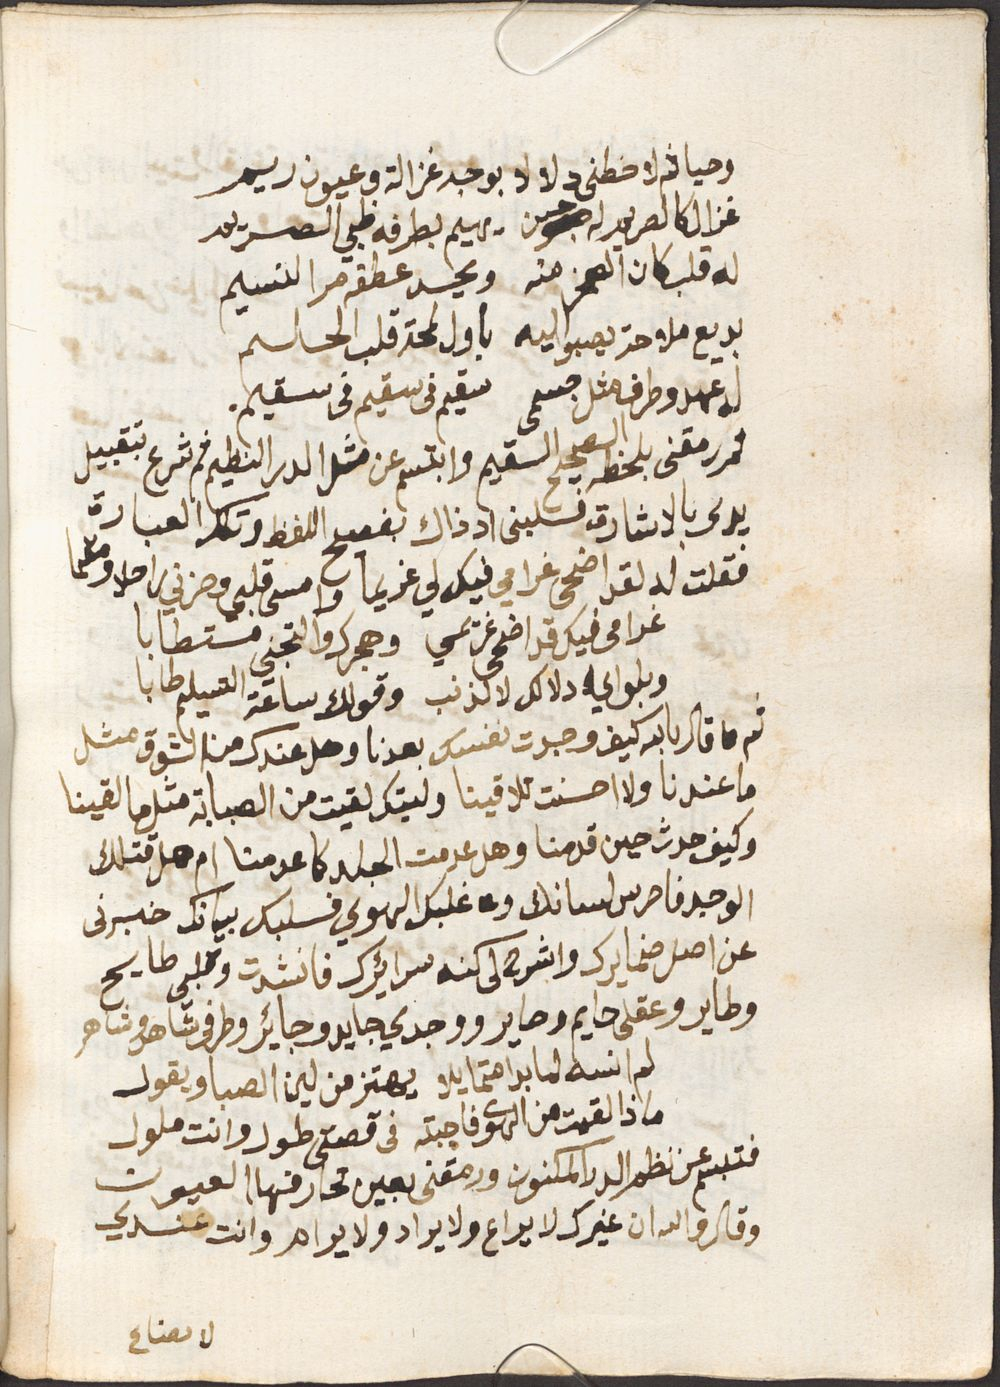 وحيا ثم لاحظني دلالا بوجه غزالة وعيون ريم
غزال كالصريم له جبين يهيم بطرفه ظبي الصريم
له قلب كان الصخر منه ويحسد عطفه مر النسيم
بديع ملاحة يصبو اليه باول لمحة قلب الحليم
له عهد وطرف مثل جسمي سقيم في سقيم في سقيم
ثم رمقني بلحظه الصحيح السقيم وابتسم عن مثل الدر النظيم ثم شرع بتقبيل
يدي بالاشارة فسلبني اذ ذاك بفصيح اللفظ وتلك العبارة
فقلت له لقد اضحى غرامي فيك لي غريما وامسى قلبي وحزني راحلا ومقيما
غرامي فيك قد اضحى غريمي وهجرك والتجني مستطابا
وبلواي دلالك لا لذنب وقولك ساعة التسليم طابا
ثم ما قال بابه كيف وجدت نفسك بعدنا وهل عندك من الشوق مثل
ما عندنا ولا احسنت تلاقينا وليتك لقيت من الصبابة مثل ما لقينا
وكيف حدث حين قدمنا وهل عدمت الجلد كما عدمنا ام هل قتلك
الوجد فاخرس لسانك وغلبك الهوي فسلبك بيانك خبرني
عن اصل ضمايرك واشرح لي كنه سرائرك فانشدت وقلبي طايح
وطاير وعقلي حايم وحاير ووجدي جايد وجائر وطرفي شاهد وساهر
لم انسه لما بدا متمايلا يهتز من لين الصبا ويقول
ماذا لقيت من الهوى فاجبته في قصتي طول وانت ملول
فتبسم عن نظم الدر المكنون ورمقني بعين تحار فيها العيون
وقال والله ان غيرك لا يراع ولا يراد ولا يرام وانت عندي
لا تضاع